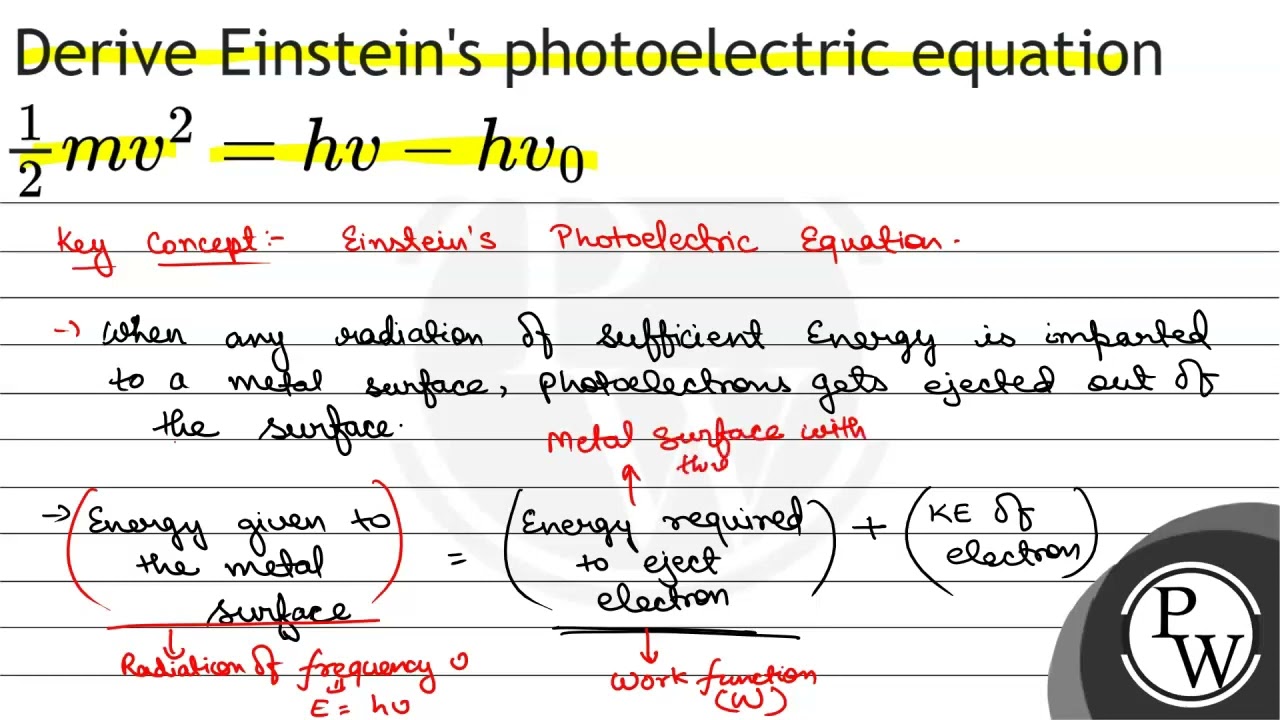 Derive Einstein's photoelectric equation
½mv² = hυ − hυ₀
Key Concept:- Einstein's Photoelectric Equation.
→ When any radiation of sufficient Energy is imparted
to a metal surface, photoelectrons gets ejected out of
the surface.
Metal surface with
→ (Energy given to the metal surface) = (Energy required to eject electron) + (KE of electron)
Radiation of frequency υ
E = hυ
Work function
(W)
P
W